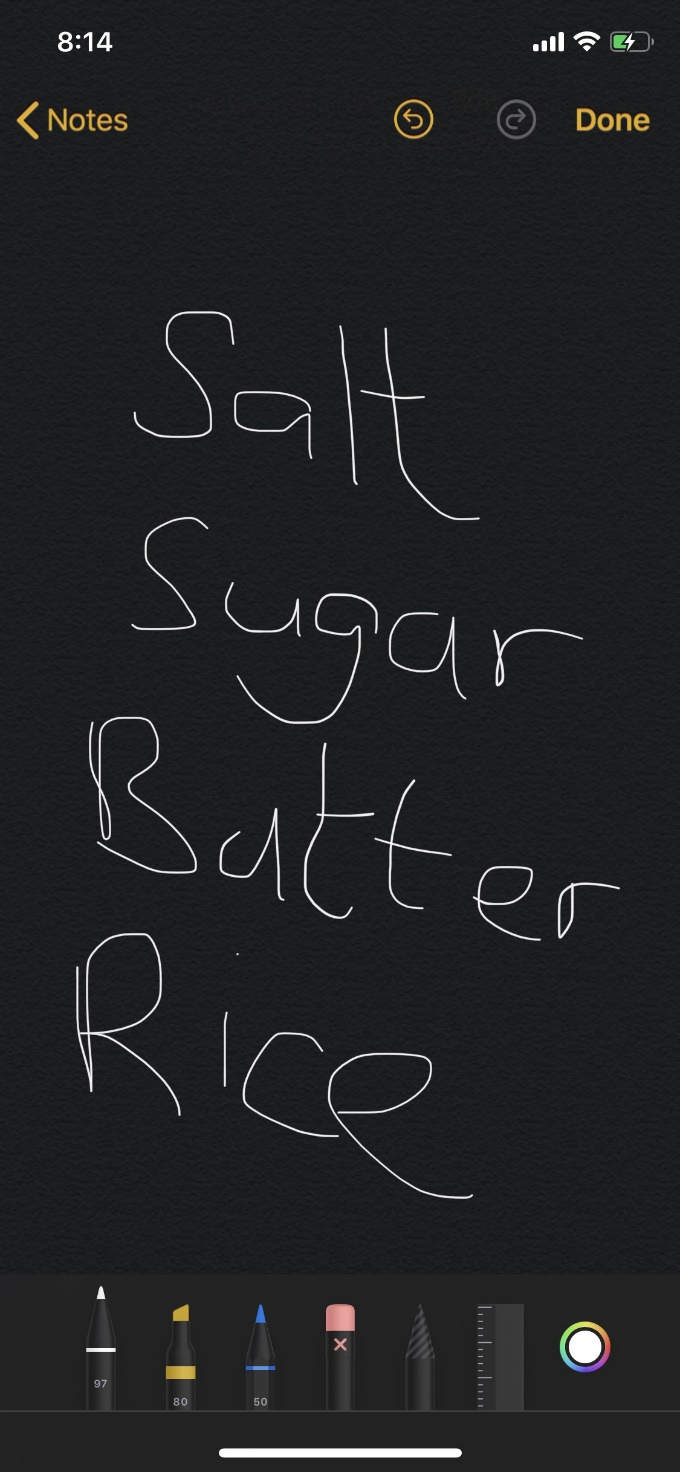 8:14
Notes Done
Salt
Sugar
Butter
Rice
97 80 50